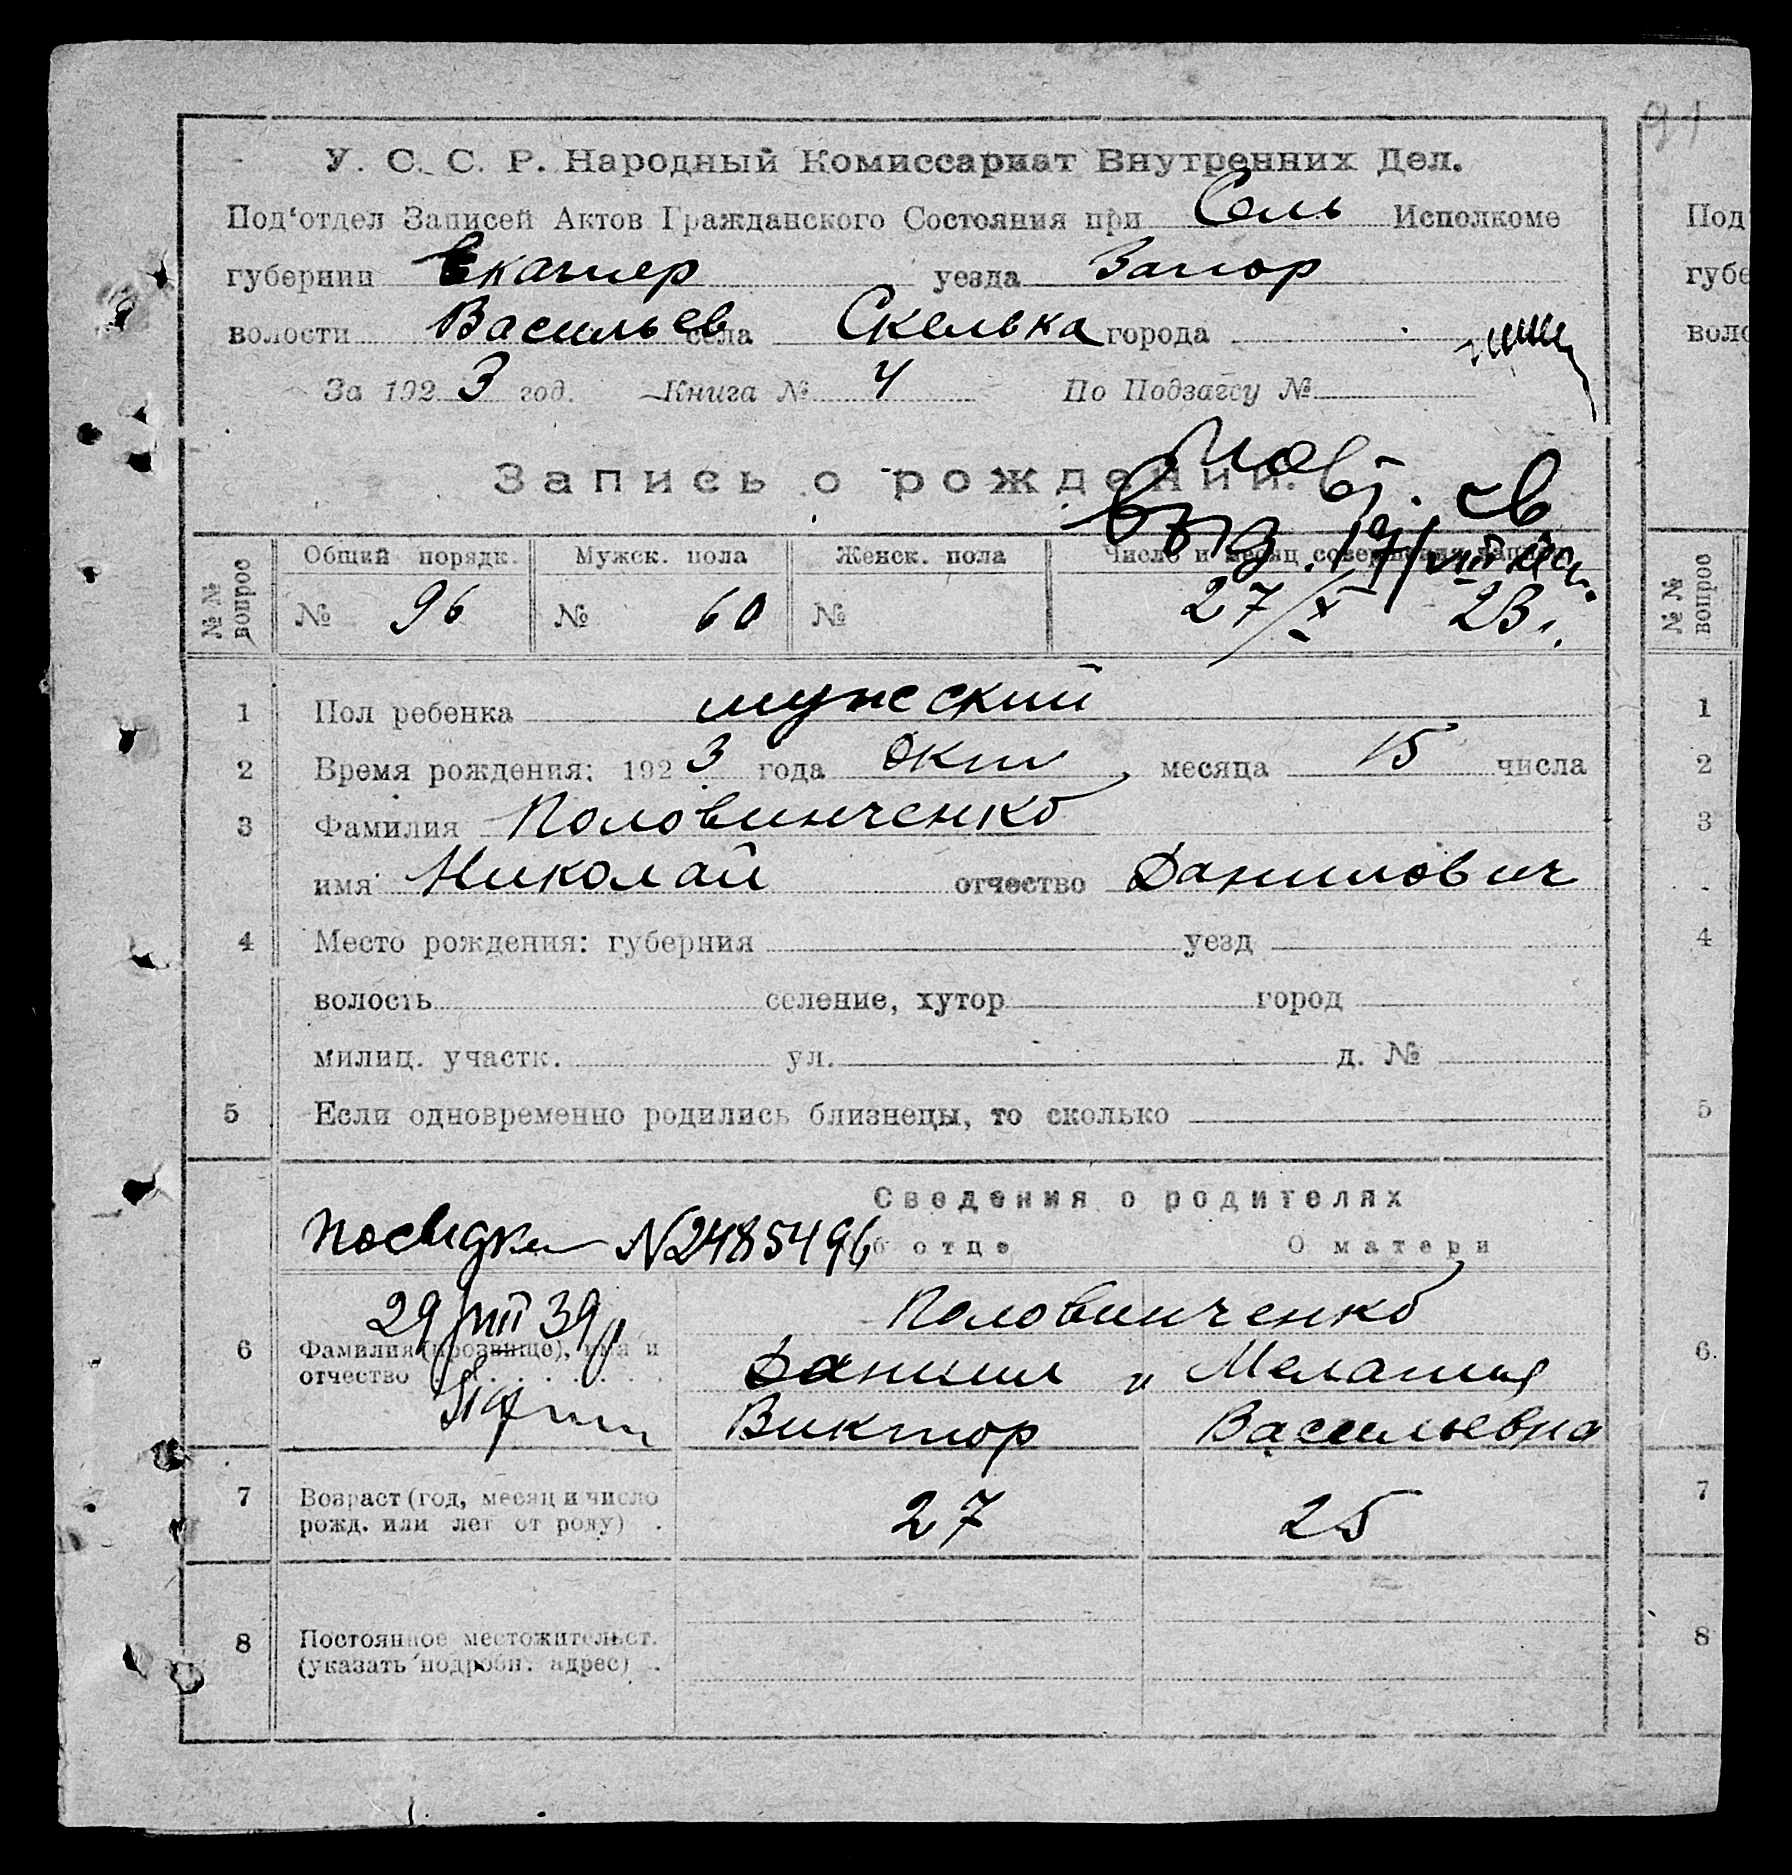 91
У. С. С. Р. Народный Комиссариат Внутренних Дел.
Под'отдел Записей Актов Гражданского Состояния при Сель Исполкоме
губернии Екатер уезда Запор
волости Васильев села Скелька города
За 1923 год. Книга № 4 По Подзагсу №
Запись о рождении.
№№ вопрос
Общий порядк. Мужск. пола Женск. пола Число и месяц совершения записи
№ 96 № 60 № 27/X 23 г.
1 Пол ребенка мужеский
2 Время рождения: 1923 года Окт месяца 15 числа
3 Фамилия Половинченко
имя Николай отчество Данилович
4 Место рождения: губерния уезд
волость селение, хутор город
милиц. участк. ул. д. №
5 Если одновременно родились близнецы, то сколько
Сведения о родителях
Посвідка N2485496 Об отце О матери
29/VIII 39 р
Половинченко
6 Фамилия (прозвище), имя и
отчество
Даниил и Мелания
Виктор Васильевна
7 Возраст (год, месяц и число
рожд. или лет от роду)
27 25
8 Постоянное местожительст.
(указать подробн. адрес)
Под
губе
воло
№№ вопрос
1
2
3
4
5
6.
7
8